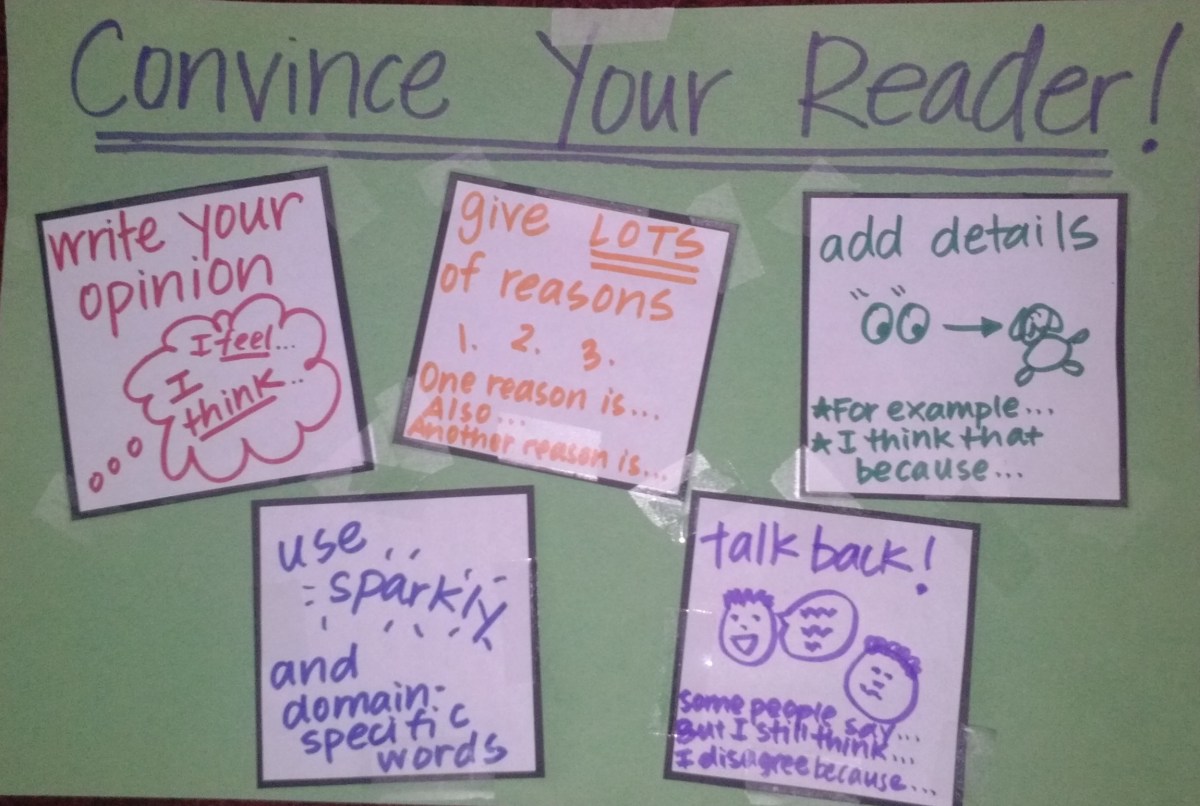 Convince Your Reader!
write your
opinion
I feel...
I
think...
give LOTS
of reasons
1. 2. 3.
One reason is...
Also...
Another reason is...
add details
*For example...
*I think that
because...
use
sparkly
and
domain-
specific
words
talk back!
some people say...
But I still think...
I disagree because...